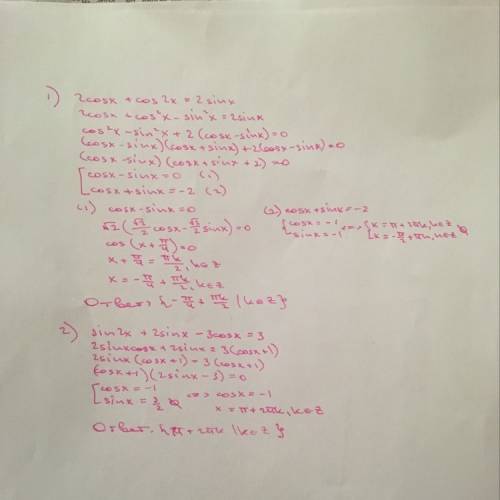 1) 2cosx + cos2x = 2sinx
2cosx + cos²x - sin²x = 2sinx
cos²x - sin²x + 2(cosx - sinx) = 0
(cosx - sinx)(cosx + sinx) + 2(cosx - sinx) = 0
(cosx - sinx)(cosx + sinx + 2) = 0
[cosx - sinx = 0 (1)
cosx + sinx = -2 (2)
(1) cosx - sinx = 0
√2(√2/2 cosx - √2/2 sinx) = 0
cos(x + π/4) = 0
x + π/4 = πk/2, k∈Z
x = -π/4 + πk/2, k∈Z
(2) cosx + sinx = -2
{cosx = -1
sinx = -1 <=> {x = π + 2πk, k∈Z
x = -π/2 + πk, k∈Z ∅
Ответ: {-π/4 + πk/2 | k∈Z}
2) sin2x + 2sinx - 3cosx = 3
2sinxcosx + 2sinx = 3(cosx + 1)
2sinx(cosx + 1) - 3(cosx + 1)
(cosx + 1)(2sinx - 3) = 0
[cosx = -1
sinx = 3/2 ∅ <=> cosx = -1
x = π + 2πk, k∈Z
Ответ: {π + 2πk | k∈Z}